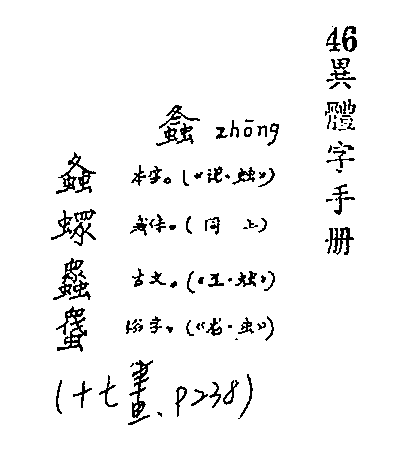 46 異體字手册
螽 zhōng
本字。(《说·䖵》)
或体。(同上)
古文。(《玉·䖵》)
俗字。(《龙·虫》)
(十七畫、P238)